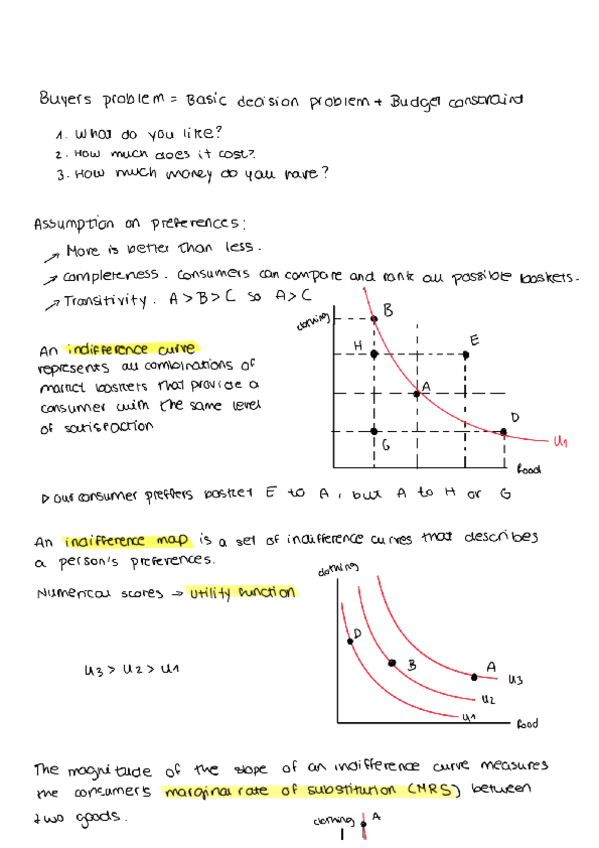 Buyers problem = Basic decision problem + Budget constraint
1. What do you like?
2. How much does it cost?
3. How much money do you have?
Assumption on preferences:
↗ More is better than less.
↗ Completeness. Consumers can compare and rank all possible baskets.
↗ Transitivity. A > B > C so A > C
clothing
B
H
E
A
D
G
U1
food
An indifference curve
represents all combinations of
market baskets that provide a
consumer with the same level
of satisfaction
▷ our consumer preffers basket E to A, but A to H or G
An indifference map is a set of indifference curves that describes
a person's preferences.
Numerical scores → utility function
clothing
D
B
A
U3
U2
U1
food
U3 > U2 > U1
The magnitude of the slope of an indifference curve measures
the consumer's marginal rate of substitution (MRS) between
two goods.
clothing
A